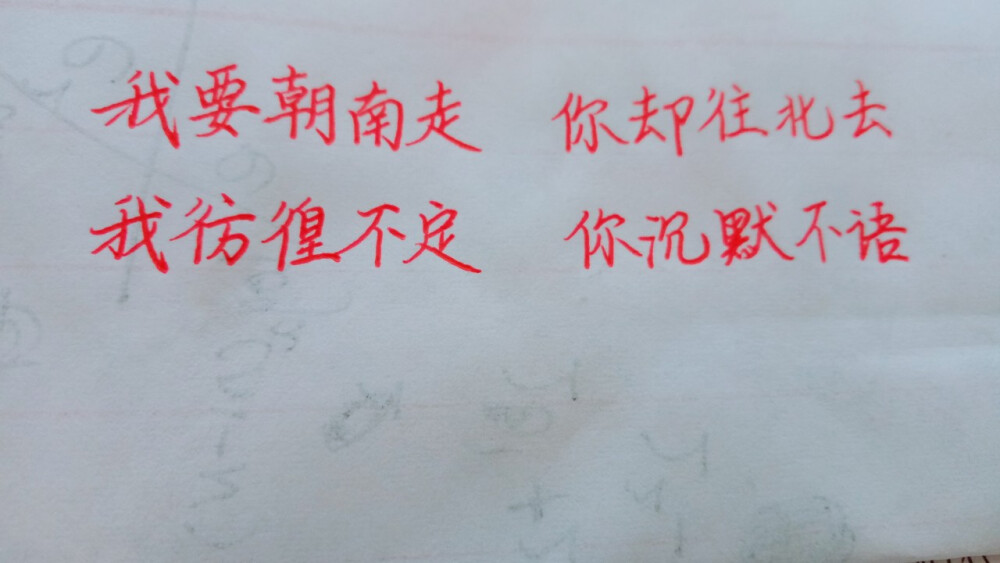 我要朝南走 你却往北去
我彷徨不定 你沉默不语